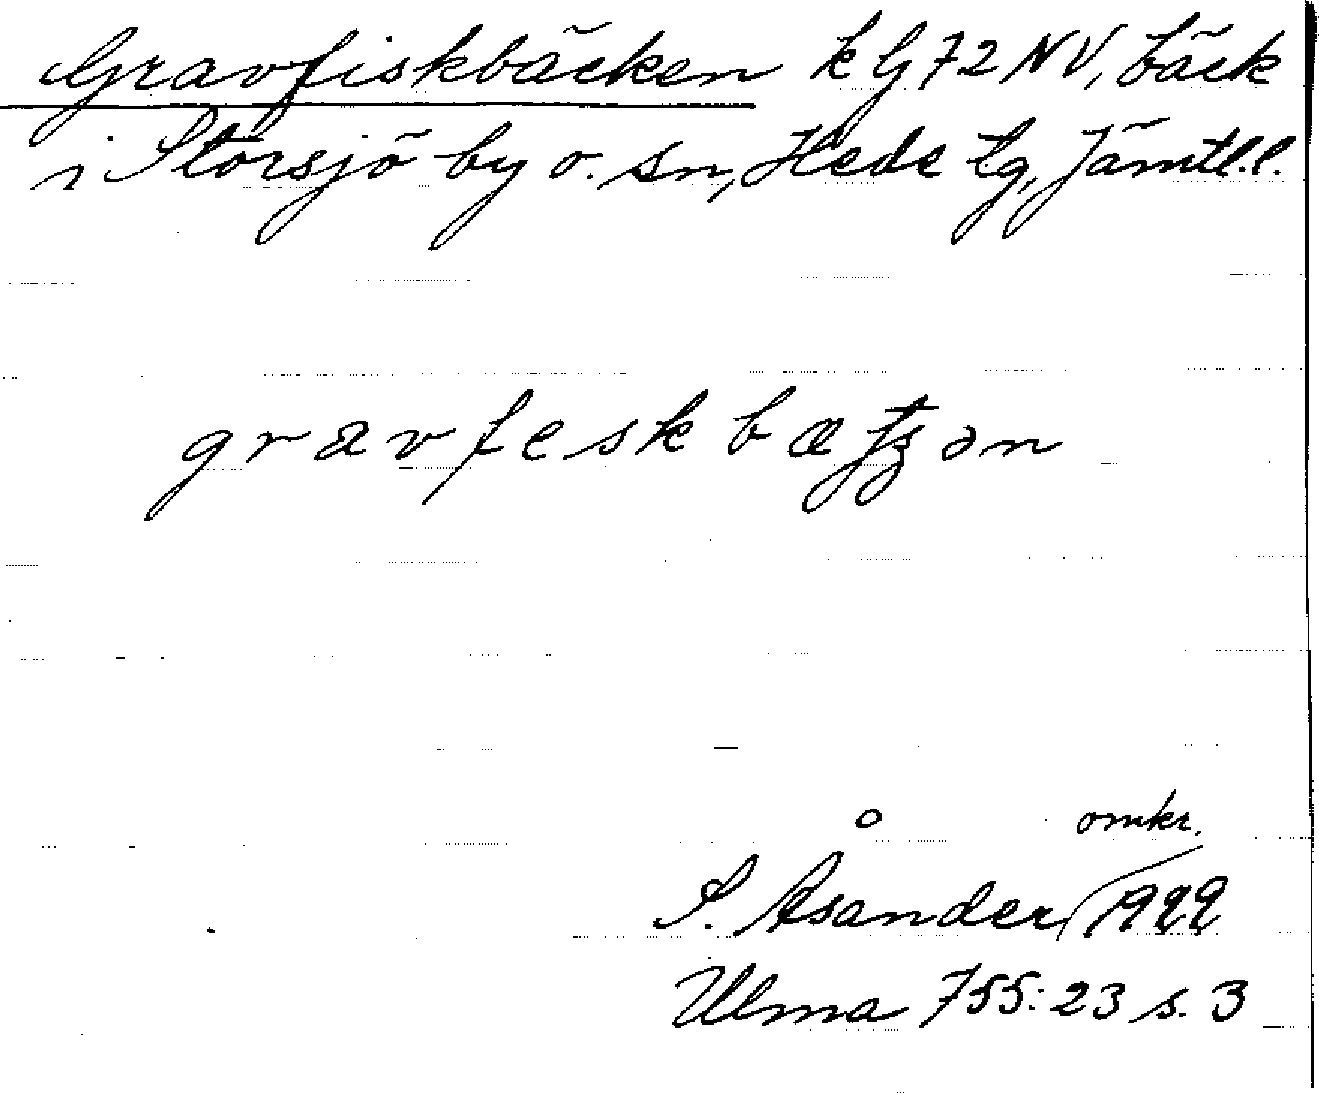 Gravfiskbäcken k G 72 NV, bäck
i Storsjö by o. sn, Hede tg, Jämtl.l.
gravfeskbætʒən
omkr.
S. Åsander / 1922
Ulma 755:23 s. 3